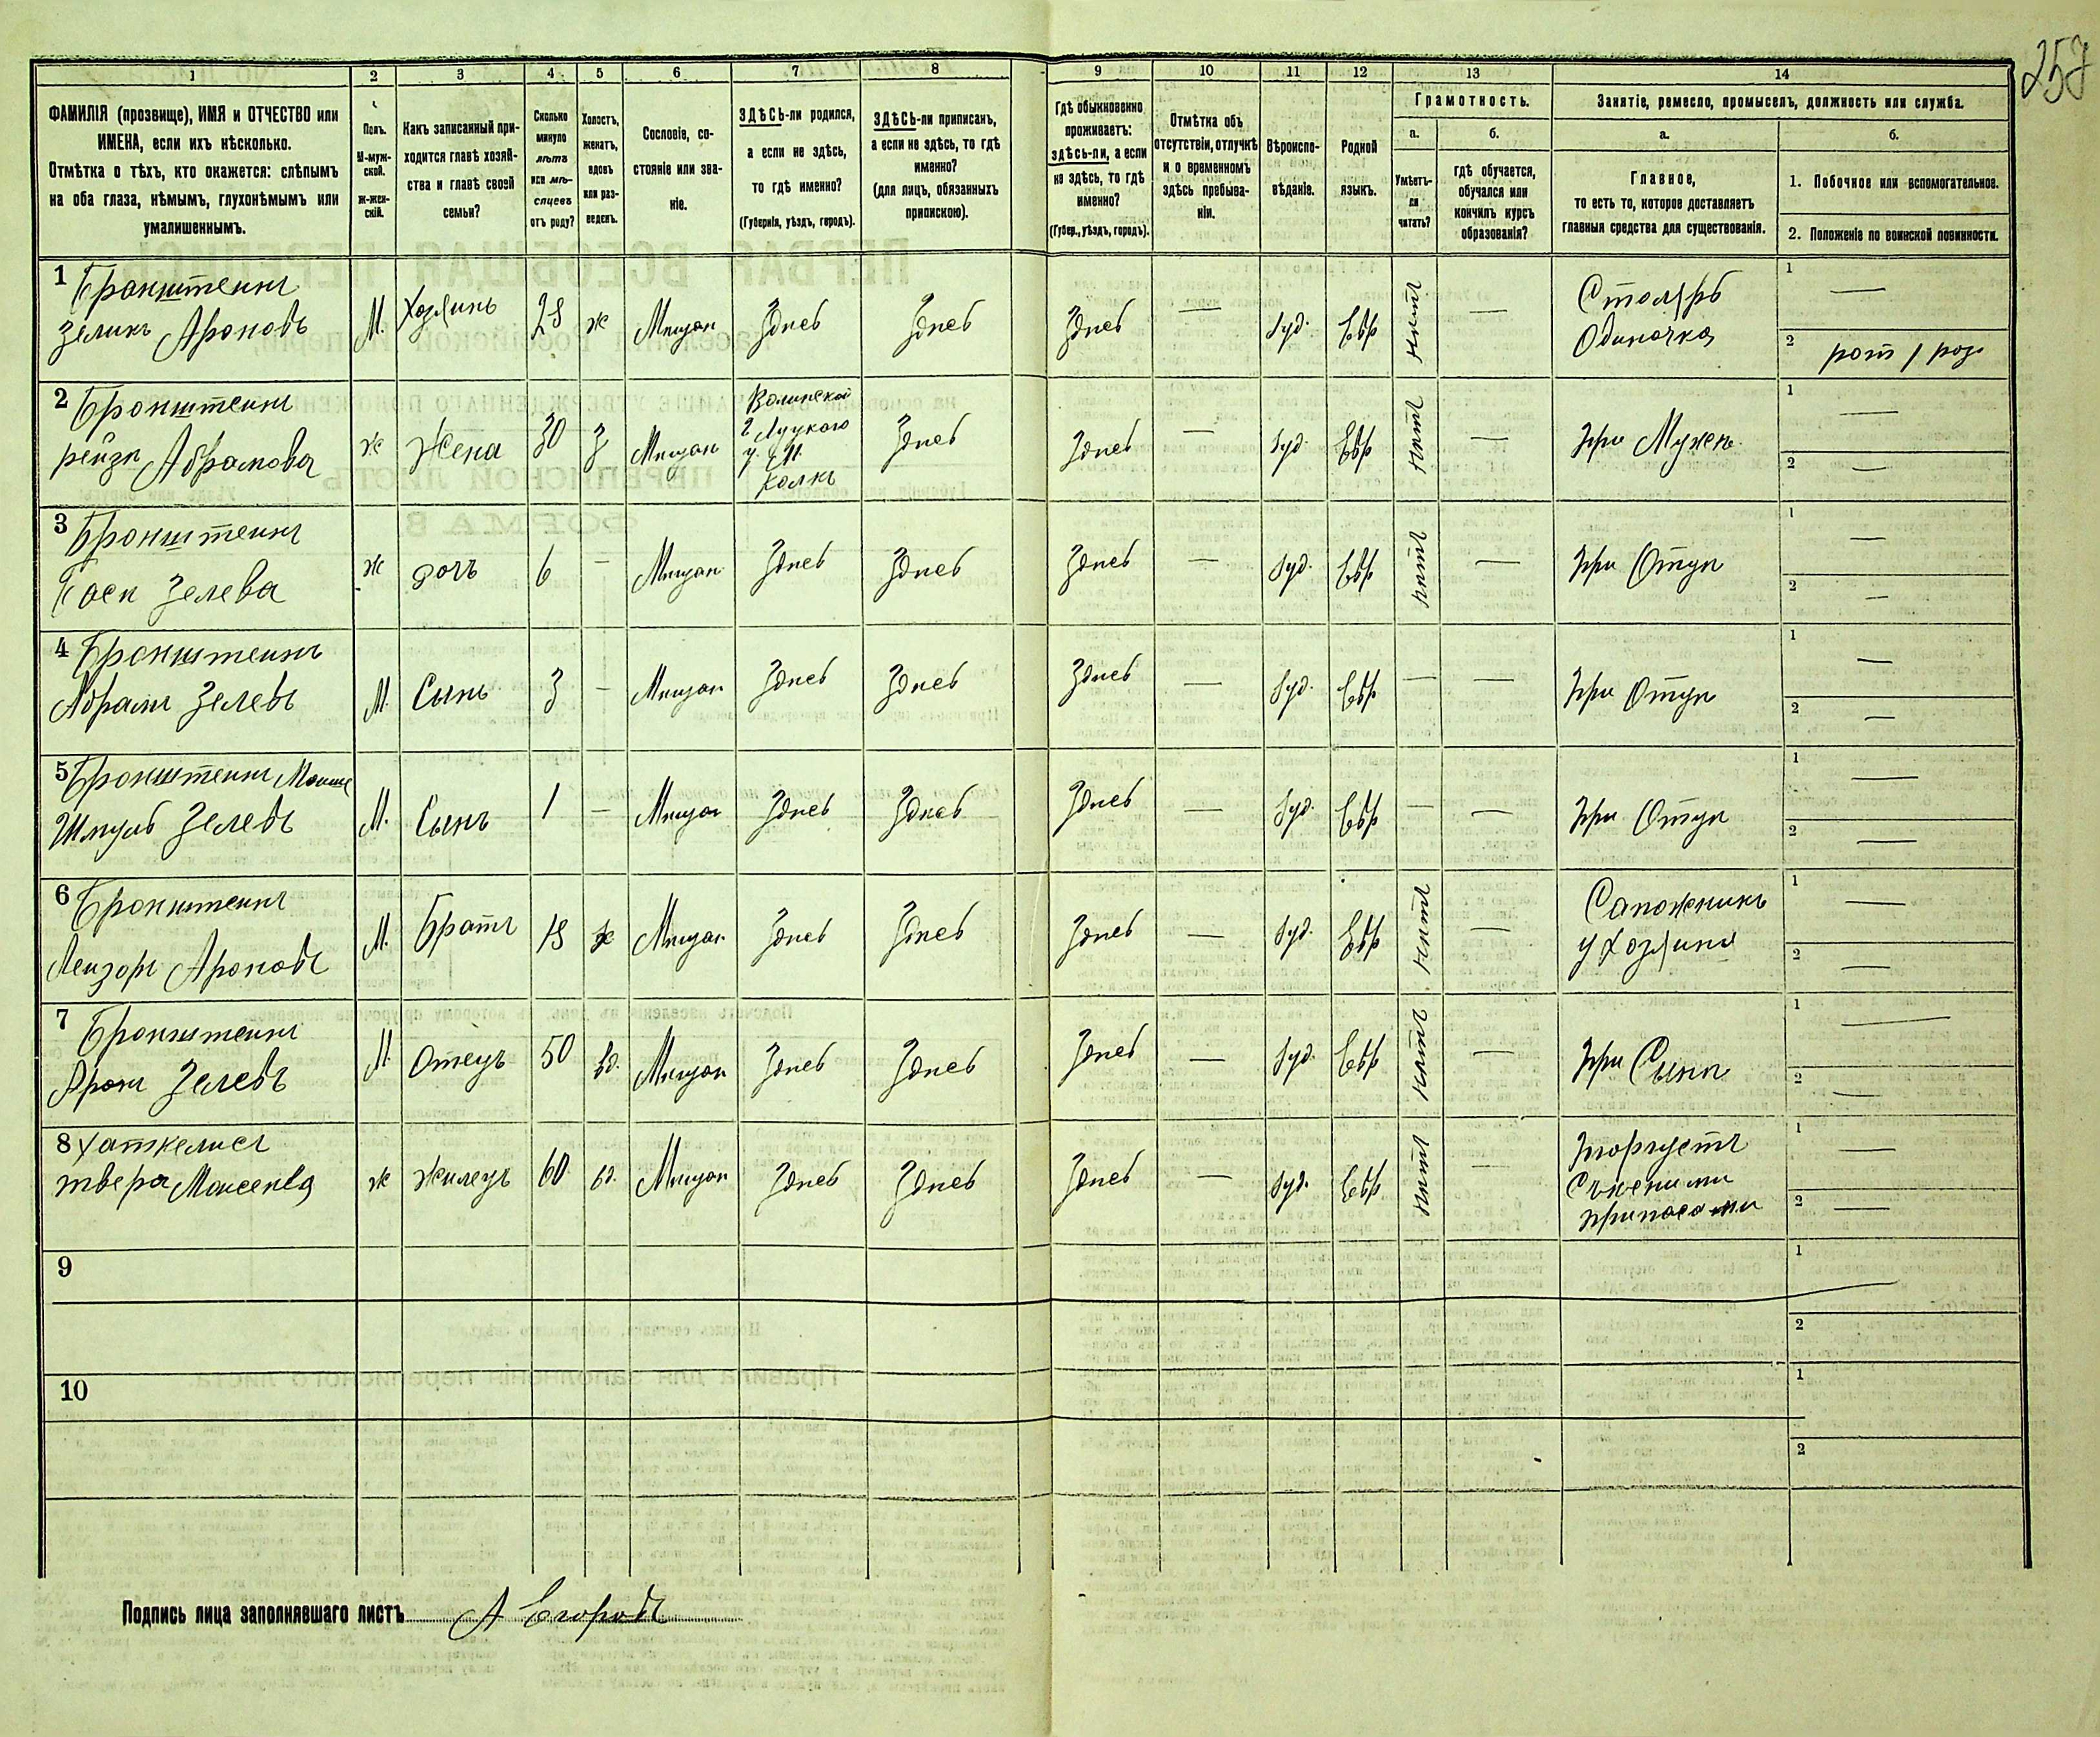 257
1 2 3 4 5 6 7 8 9 10 11 12 13 14
ФАМИЛІЯ (прозвище), ИМЯ и ОТЧЕСТВО или
ИМЕНА, если ихъ нѣсколько.
Отмѣтка о тѣхъ, кто окажется: слѣпымъ
на оба глаза, нѣмымъ, глухонѣмымъ или
умалишеннымъ.
Полъ.
М-муж-
ской.
ж-жен-
скій.
Какъ записанный при-
ходится главѣ хозяй-
ства и главѣ своей
семьи?
Сколько
минуло
лѣтъ
или мѣ-
сяцевъ
отъ роду?
Холостъ,
женатъ,
вдовъ
или раз-
веденъ.
Сословіе, со-
стояніе или зва-
ніе.
ЗДѢСЬ-ли родился,
а если не здѣсь,
то гдѣ именно?
(Губернія, уѣздъ, городъ).
ЗДѢСЬ-ли приписанъ,
а если не здѣсь, то гдѣ
именно?
(для лицъ, обязанныхъ
припискою).
Гдѣ обыкновенно
проживаетъ:
здѣсь-ли, а если
не здѣсь, то гдѣ
именно?
(Губер., уѣздъ, городъ).
Отмѣтка объ
отсутствіи, отлучкѣ
и о временномъ
здѣсь пребыва-
ніи.
Вѣроиспо-
вѣданіе.
Родной
языкъ.
Грамотность.
а.
Умѣетъ-
ли
читать?
б.
гдѣ обучается,
обучался или
кончилъ курсъ
образованія?
Занятіе, ремесло, промыселъ, должность или служба.
а.
Главное,
то есть то, которое доставляетъ
главныя средства для существованія.
б.
1. Побочное или вспомогательное.
2. Положеніе по воинской повинности.
1 Бронштейнъ
Зеликъ Ароновъ
М. Хозяинъ 28 ж Мещан Здѣсь Здѣсь Здѣсь — Іуд. Евр нѣтъ —
Столяръ
Одиночка
1 —
2
2 Бронштейнъ
Рейзя Абрамова
ж Жена 30 З Мещан
Волынской
г Луцкого
у. М.
Колкъ
Здѣсь Здѣсь — Іуд Евр нѣтъ — При Мужѣ
1 —
2 —
3 Бронштейнъ
Бася Зелева
ж дочь 6 — Мещан Здѣсь Здѣсь Здѣсь — Іуд. Евр нѣтъ — При Отцѣ
1 —
2 —
4 Бронштейнъ
Абрамъ Зелевъ
М. Сынъ 3 — Мещан Здѣсь Здѣсь Здѣсь — Іуд. Евр — — При Отцѣ
1 —
2 —
5 Бронштейнъ Мошко
Шмуль Зелевъ
М. Сынъ 1 — Мещан Здѣсь Здѣсь Здѣсь — Іуд. Евр — — При Отцѣ
1 —
2 —
6 Бронштейнъ
Лейзоръ Ароновъ
М. Братъ 18 Мещан Здѣсь Здѣсь Здѣсь — Іуд. Евр нѣтъ —
Сапожникъ
у Хозяина
1 —
2 —
7 Бронштейнъ
Аронъ Зелевъ
М Отецъ 50 вд. Мещан Здѣсь Здѣсь Здѣсь — Іуд. Евр нѣтъ — При Сынѣ
1 —
2 —
8
Моисеева
ж жилецъ 60 вд. Мещан Здѣсь Здѣсь Здѣсь — Іуд. Евр нѣтъ —
Торгуетъ
Съѣсными
припасами
1 —
2 —
9
1
2
10
1
2
Подпись лица заполнявшаго листъ А Егоровъ